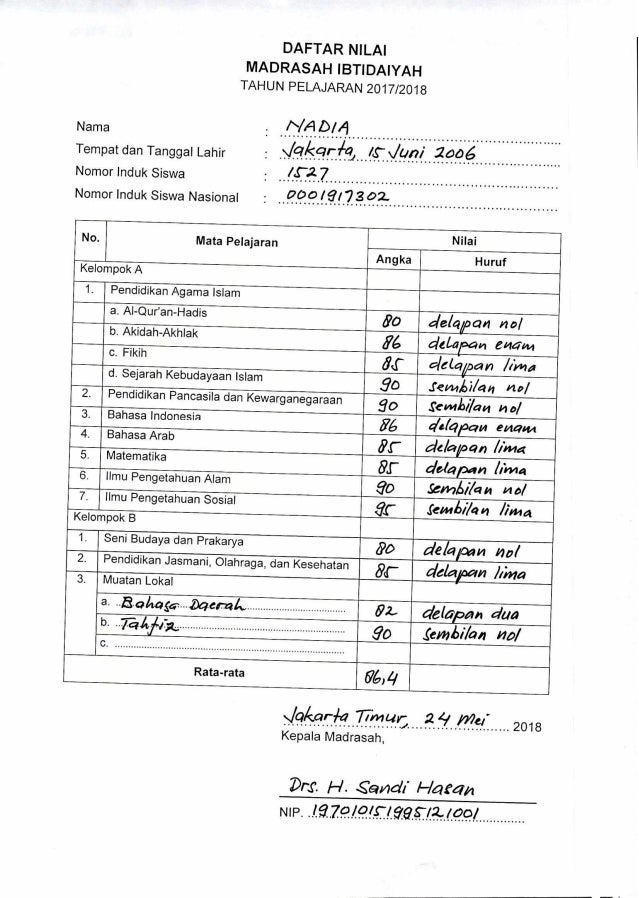 DAFTAR NILAI
MADRASAH IBTIDAIYAH
TAHUN PELAJARAN 2017/2018
Nama : NADIA
Tempat dan Tanggal Lahir : Jakarta, 15 Juni 2006
Nomor Induk Siswa : 1527
Nomor Induk Siswa Nasional : 0001917302
No. Mata Pelajaran Nilai
Angka Huruf
Kelompok A
1. Pendidikan Agama Islam
a. Al-Qur'an-Hadis 80 delapan nol
b. Akidah-Akhlak 86 delapan enam
c. Fikih 85 delapan lima
d. Sejarah Kebudayaan Islam 90 sembilan nol
2. Pendidikan Pancasila dan Kewarganegaraan 90 sembilan nol
3. Bahasa Indonesia 86 delapan enam
4. Bahasa Arab 85 delapan lima
5. Matematika 85 delapan lima
6. Ilmu Pengetahuan Alam 90 sembilan nol
7. Ilmu Pengetahuan Sosial 95 sembilan lima
Kelompok B
1. Seni Budaya dan Prakarya 80 delapan nol
2. Pendidikan Jasmani, Olahraga, dan Kesehatan 85 delapan lima
3. Muatan Lokal
a. Bahasa Daerah 82 delapan dua
b. Tahfiz 90 sembilan nol
c.
Rata-rata 86,4
Jakarta Timur, 24 Mei 2018
Kepala Madrasah,
Drs. H. Sandi Hasan
NIP. 197010151995121001